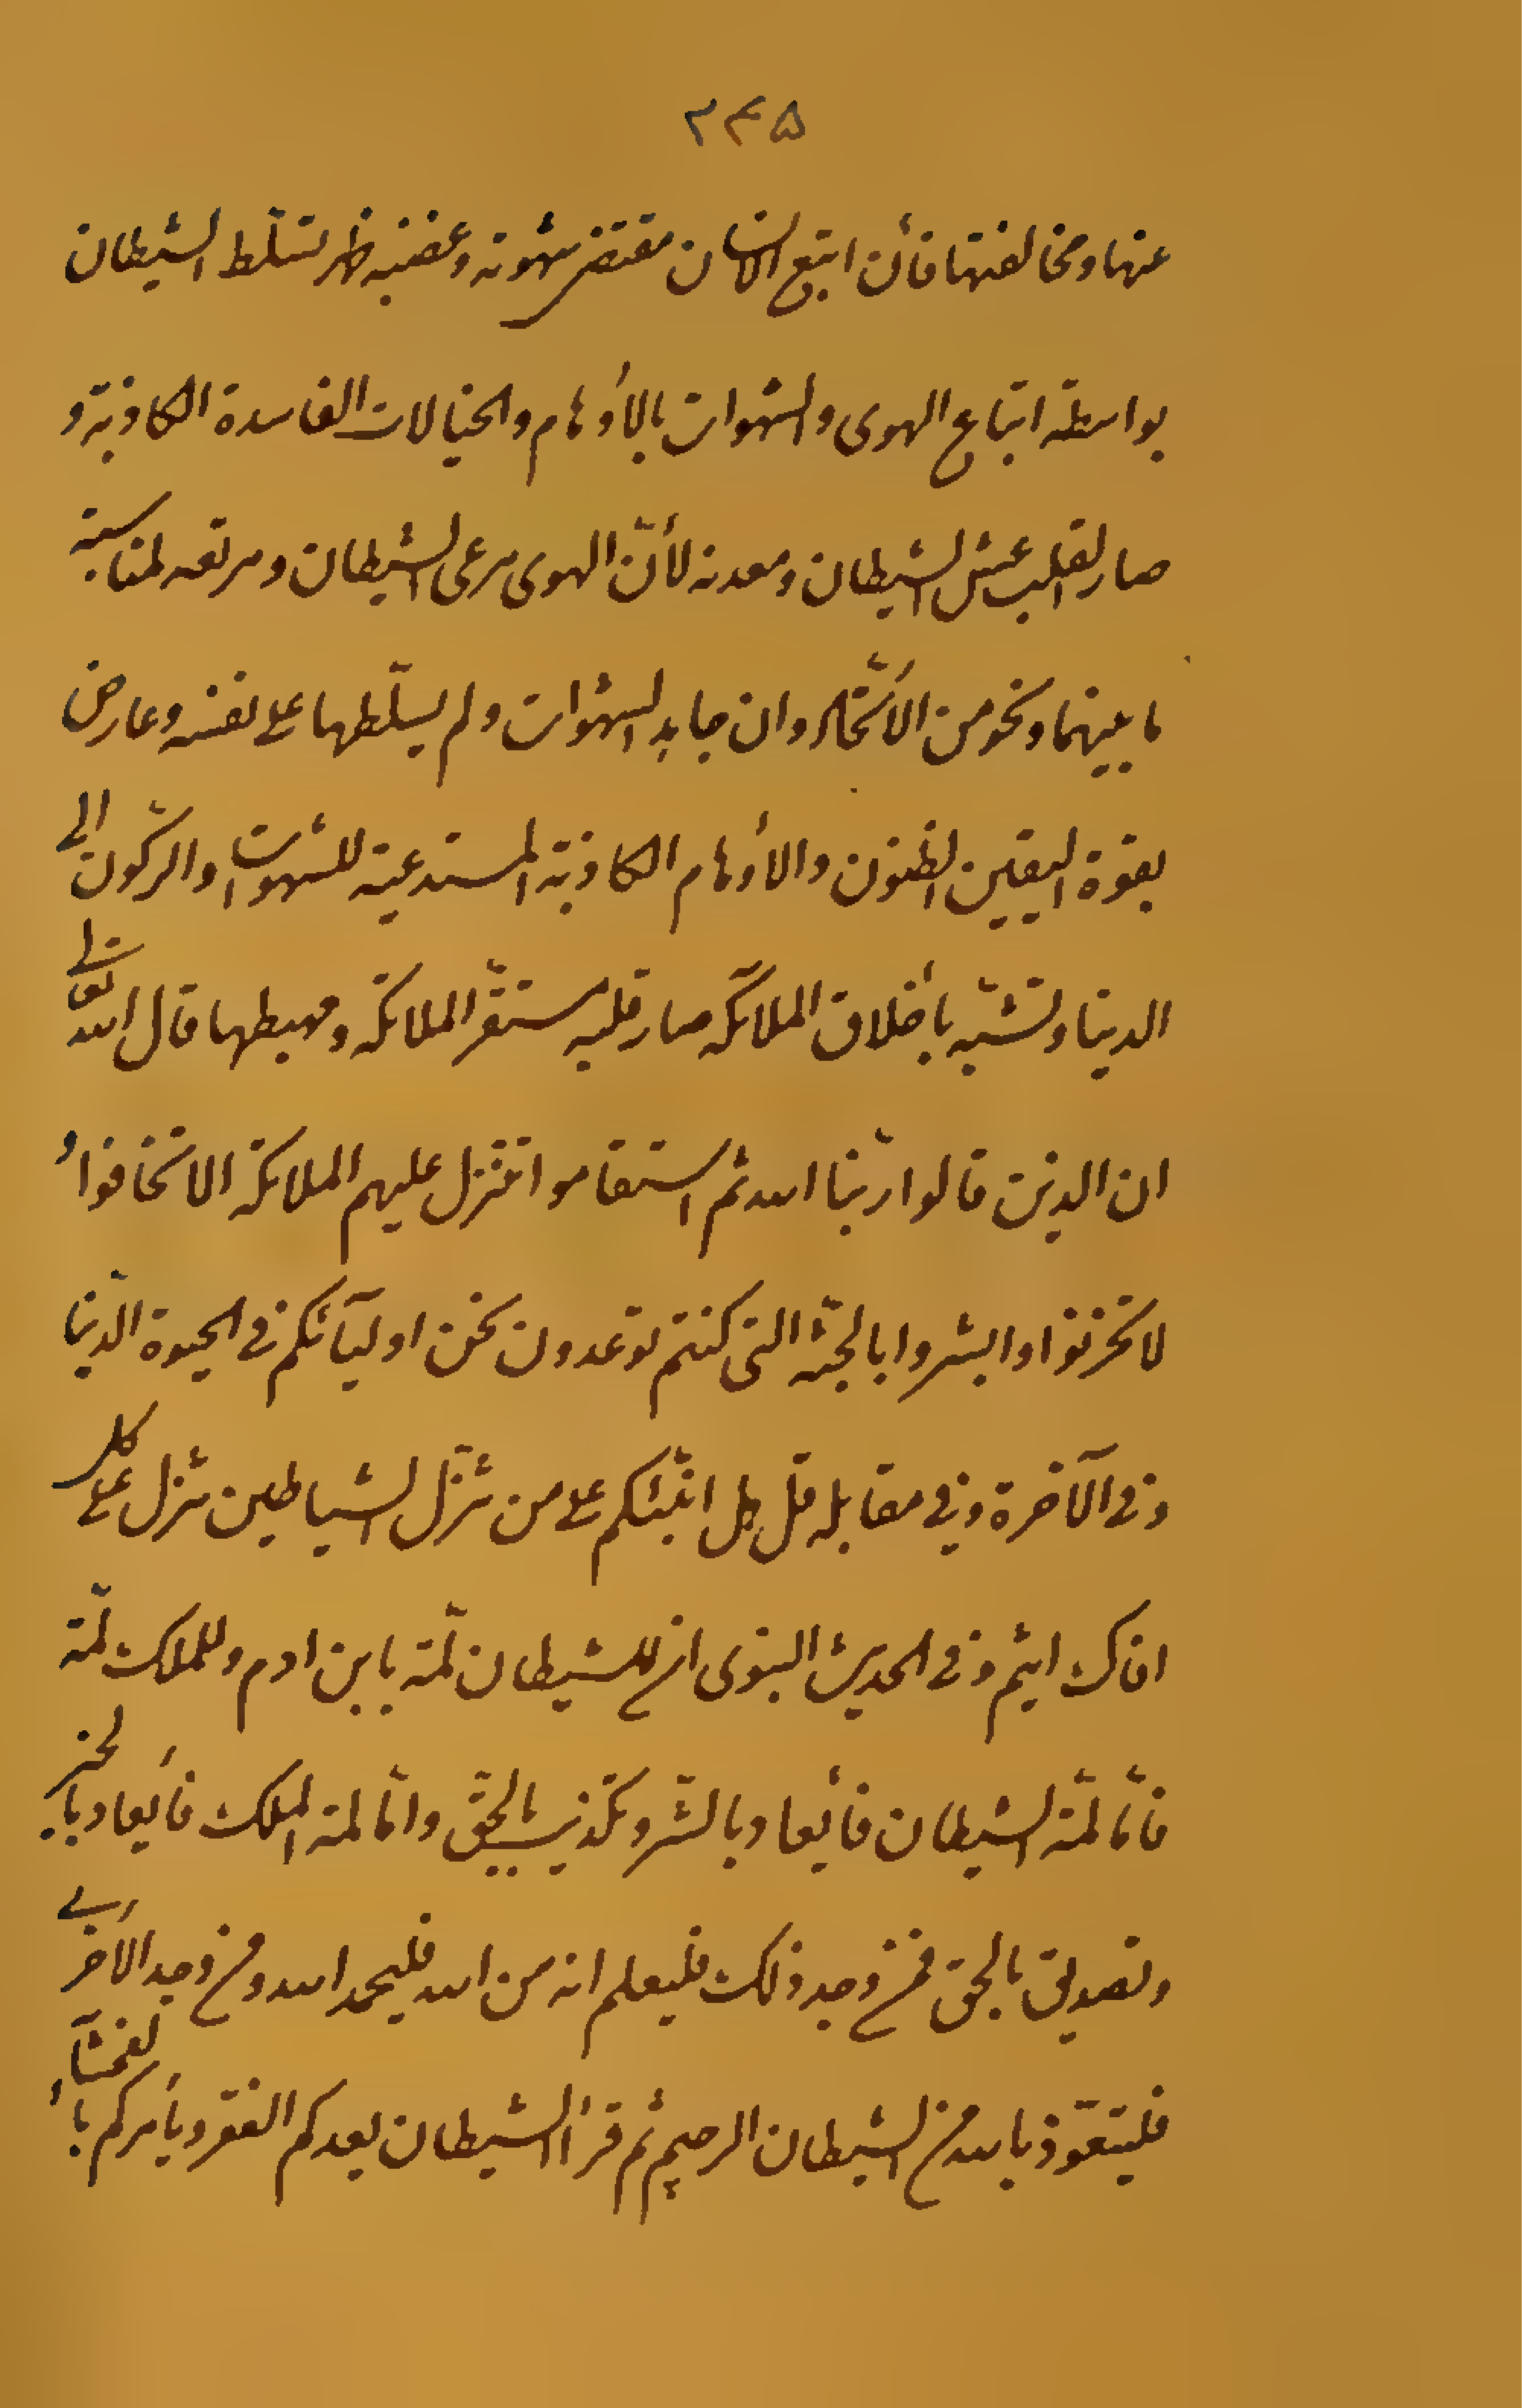 ٢٤۵
عنها ومخالفتها فأن اتبع الانسان مقتضى شهوته وغضبه ظهر تسلّط الشيطان
بواسطة اتباع الهوى والشهوات بالأوهام والخيالات الفاسدة الكاذبة و
صار القلب عش الشيطان ومعدنه لأنّ الهوى مرعى الشيطان ومرتعه لمناسبة
ما بينهما ونحو من الأتّحاد وان جاهد الشهوات ولم يسلّطها على نفسه وعارض
بقوة اليقين الظنون والأوهام الكاذبة المستدعية للشهوات والركون الى
الدنيا وتشبّه بأخلاق الملائكة صار قلبه مستقرّ الملائكة ومهبطها قال الله تعالى
ان الذين قالوا ربّنا الله ثم استقاموا تتنزل عليهم الملائكة الا تخافوا و
لا تحزنوا وابشروا بالجنّة التى كنتم توعدون نحن اوليآئكم فى الحيوة الدّنيا
وفى الآخرة وفى مقابله قل هل انبّئكم على من تنزّل الشياطين تنزل على كل
افاك اثيم وفى الحديث النبوى ان للشيطان لمّة بابن ادم وللملك لمّة
فأمّا لمّة الشيطان فأيعاد بالشّر وتكذيب بالحقّ وامّا لمة الملك فأيعاد بالخير
وتصديق بالحق فمن وجد ذلك فليعلم انه من الله فليحمد الله ومن وجد الأخرى
فليتعوّذ بالله من الشيطان الرجيم ثم قرأ الشيطان يعدكم الفقر ويأمركم بالفحشآء